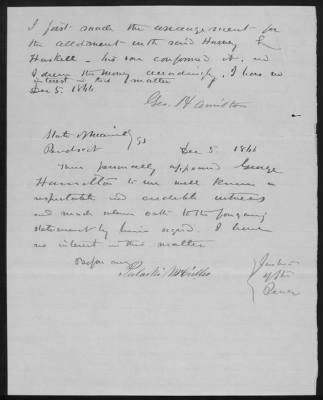 I first made the arrangement for
the allotment with said Harvey L
Haskell - his son confirmed it, and
I drew the money accordingly. I have no
interest in this matter
Dec 5. 1866
Geo. Hamilton
State of Maine } SS
Penobscot Dec 5. 1866
Then personally appeared George
Hamilton to me well known a
respectable and credible witness
and made solemn oath to the foregoing
statement by him signed. I have
no interest in this matter
Before me
Justice
of the
Peace